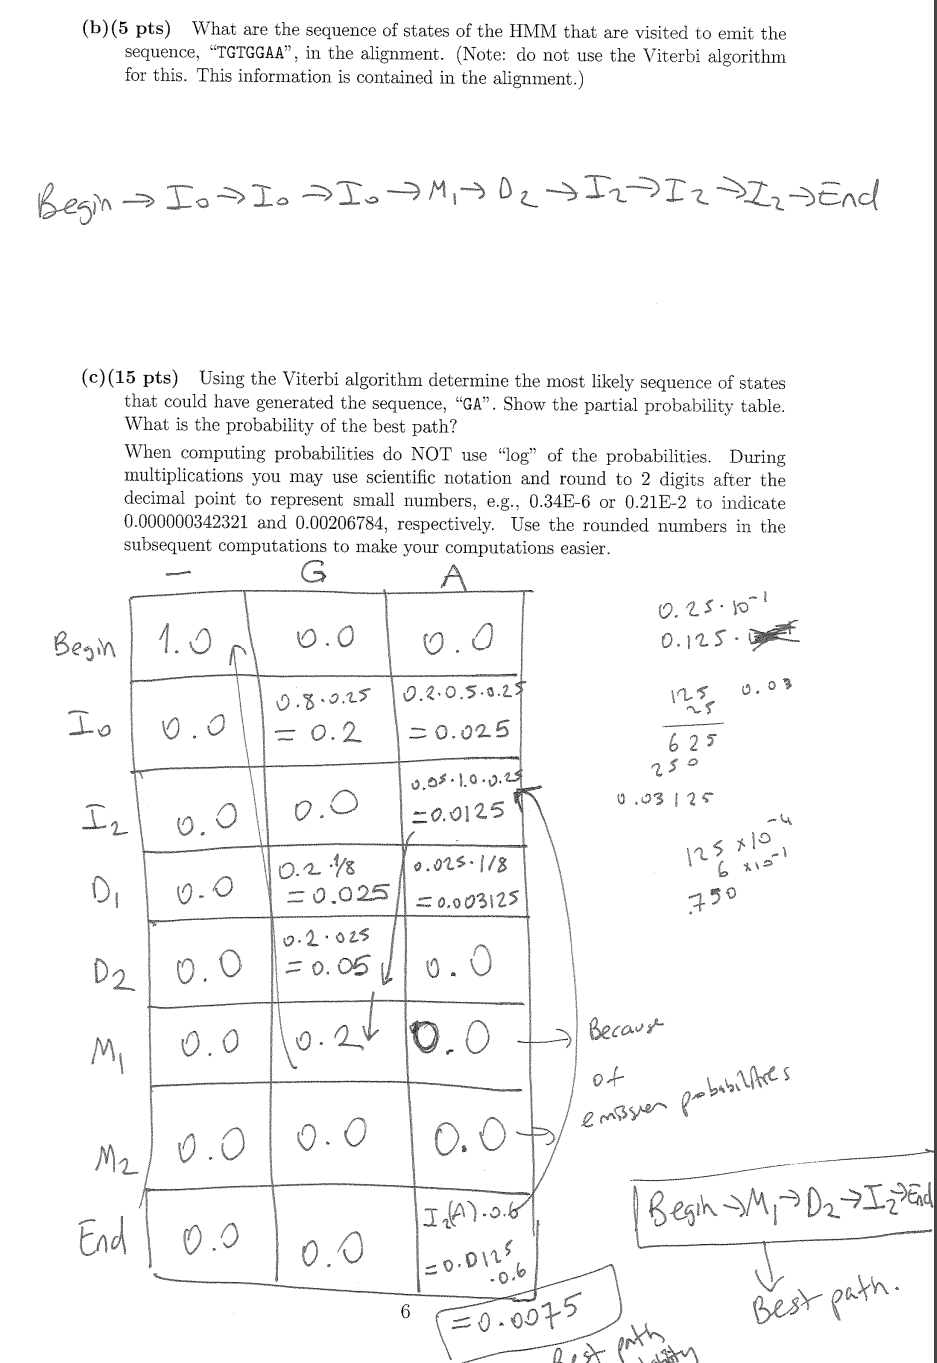 (b)(5 pts) What are the sequence of states of the HMM that are visited to emit the
sequence, “TGTGGAA”, in the alignment. (Note: do not use the Viterbi algorithm
for this. This information is contained in the alignment.)
Begin → I0 → I0 → I0 → M1 → D2 → I2 → I2 → I2 → End
(c)(15 pts) Using the Viterbi algorithm determine the most likely sequence of states
that could have generated the sequence, “GA”. Show the partial probability table.
What is the probability of the best path?
When computing probabilities do NOT use “log” of the probabilities. During
multiplications you may use scientific notation and round to 2 digits after the
decimal point to represent small numbers, e.g., 0.34E-6 or 0.21E-2 to indicate
0.000000342321 and 0.00206784, respectively. Use the rounded numbers in the
subsequent computations to make your computations easier.
– G A
Begin 1.0 0.0 0.0
I0 0.0 0.8·0.25 = 0.2 0.2·0.5·0.25 = 0.025
I2 0.0 0.0 0.05·1.0·0.25 = 0.0125
D1 0.0 0.2·1/8 = 0.025 0.025·1/8 = 0.003125
D2 0.0 0.2·025 = 0.05 0.0
M1 0.0 0.2 0.0 → Because
of
emission probabilities
M2 0.0 0.0 0.0 →
End 0.0 0.0 I2(A)·0.6 = 0.0125 ·0.6
= 0.0075
Best path
0.25·10-1
0.125·
125 0.03
25
625
250
0.03125
125 x10-4
6 x10-1
.750
Begin → M1 → D2 → I2 → End
Best path.
6